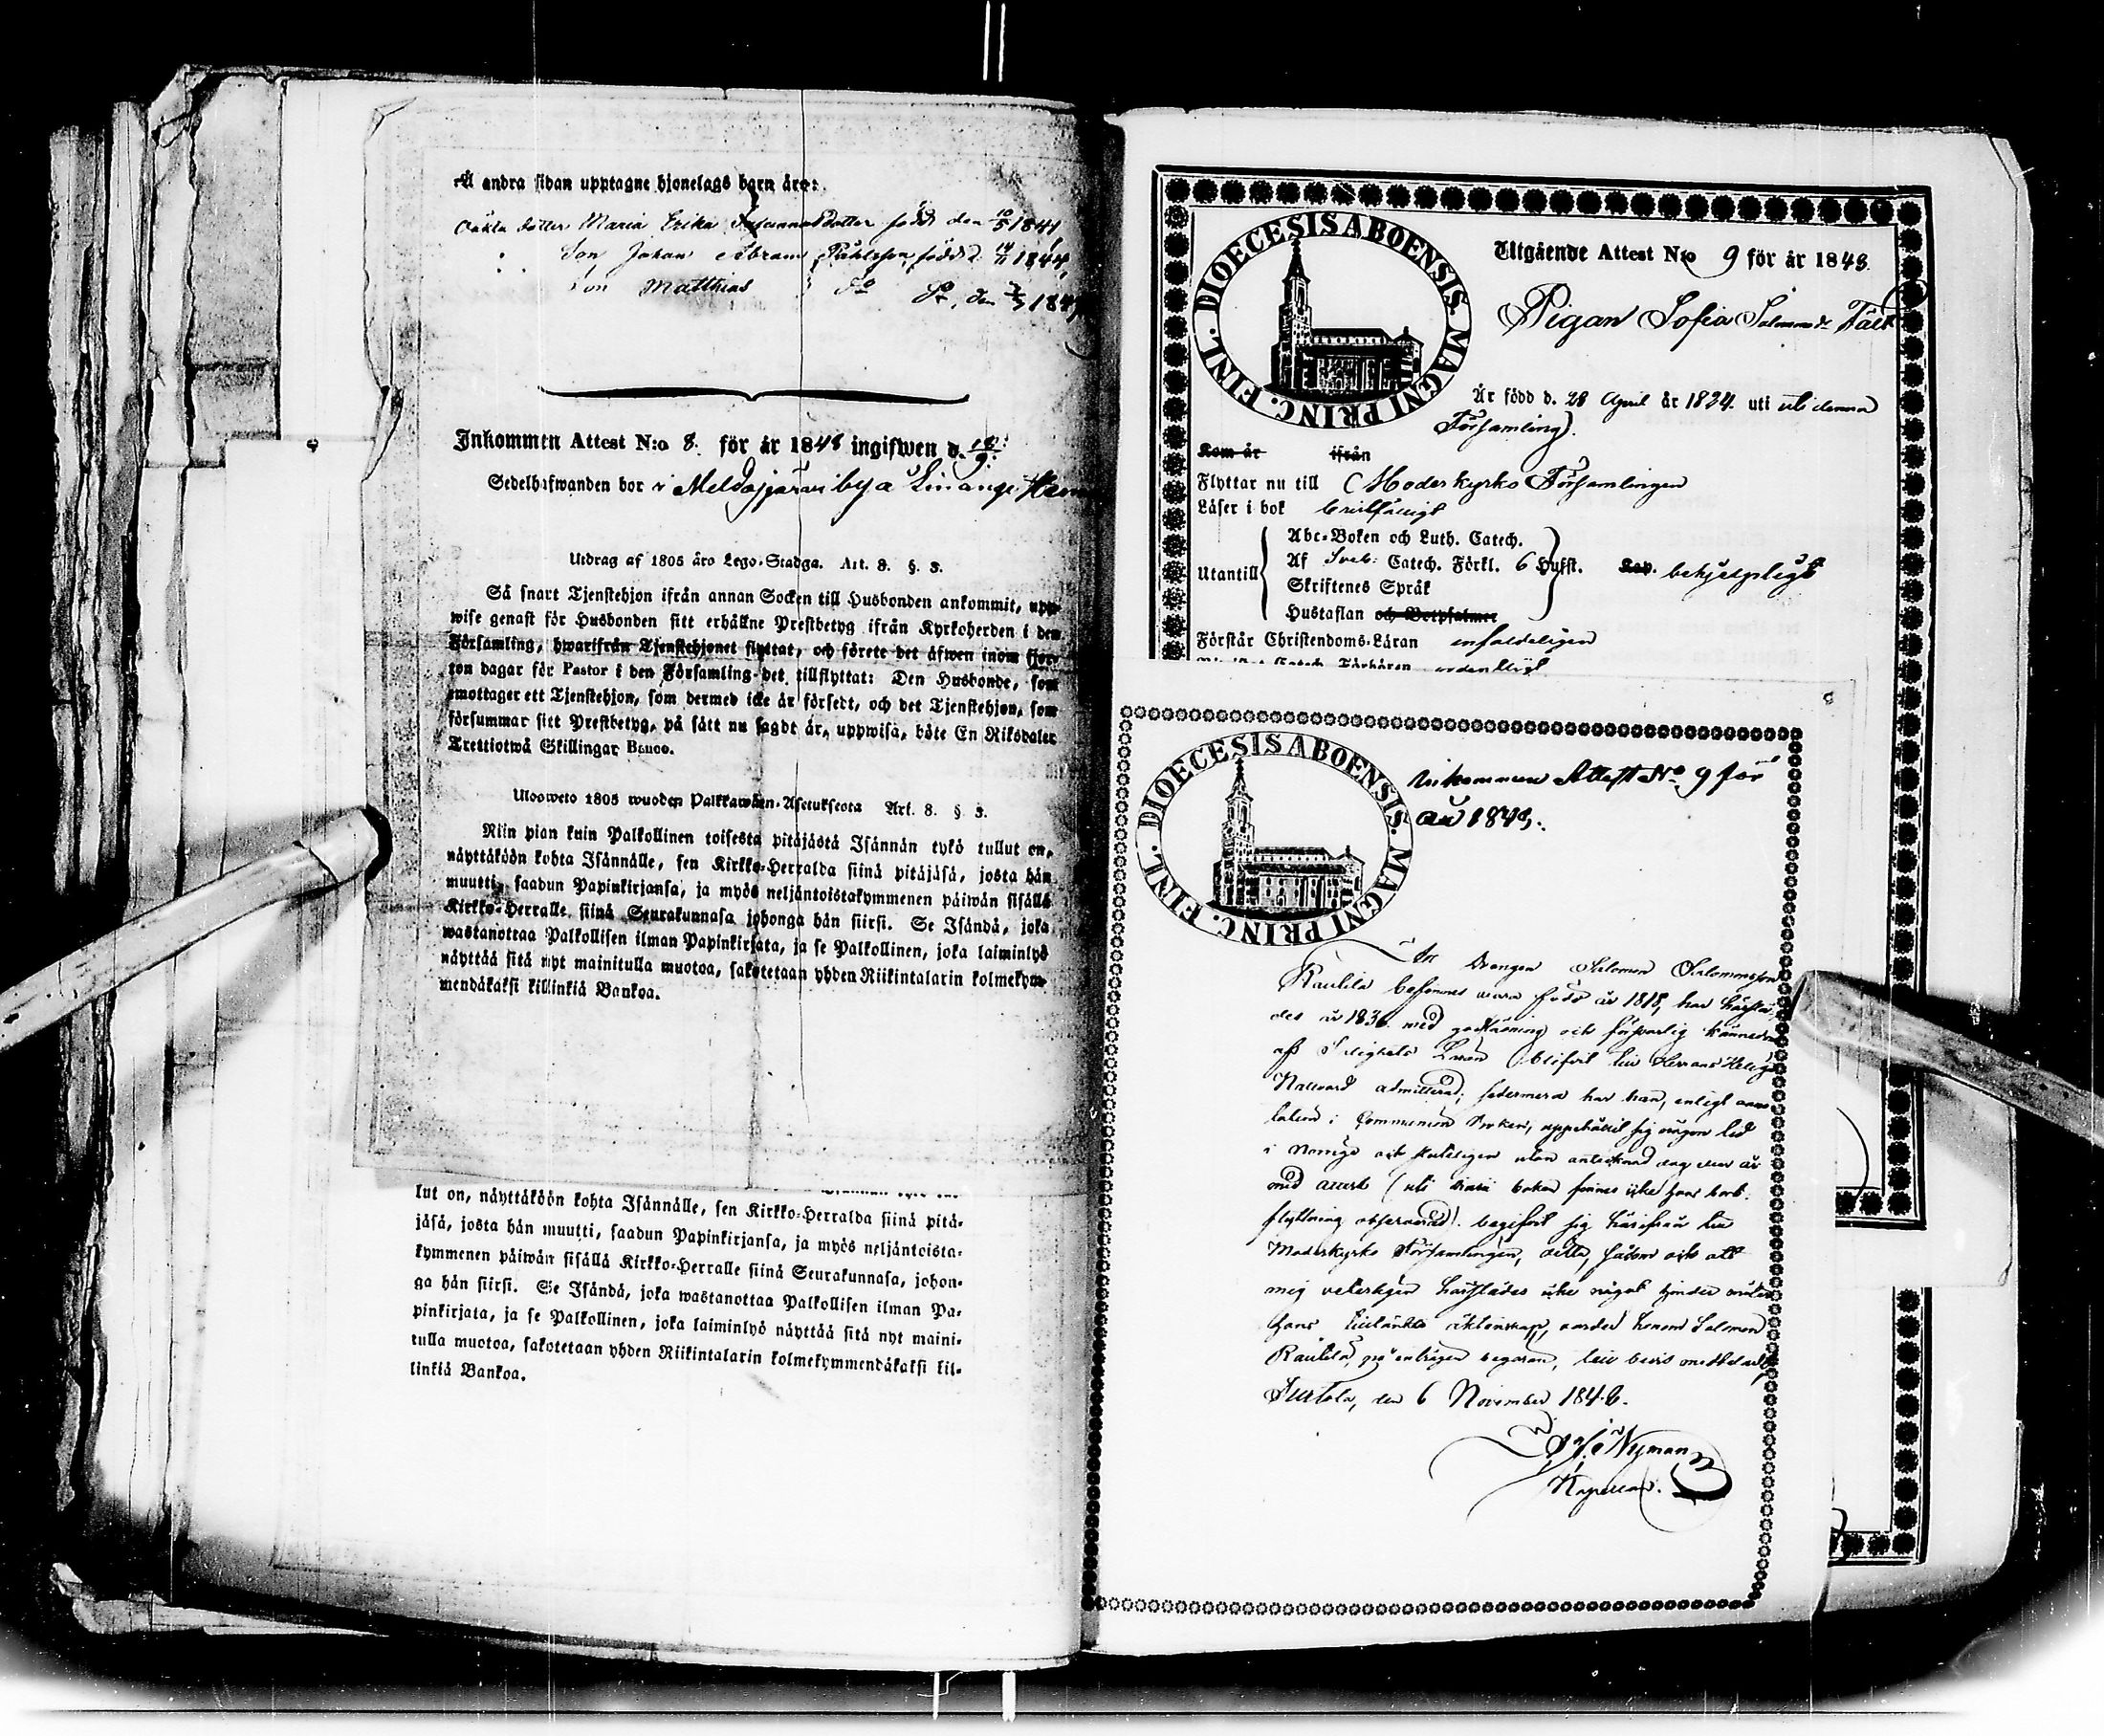 Å andra sidan upptagne hjonelags barn äro:
Oäkta dotter Maria Erika dotter född den 1841
Son Johan Abram Påhlsson född d. 1844,
Son Matthias do do, den
Inkommen Attest N:o 8. för år 1848 ingifwen d.
Sedelhafwanden bor i by å
Utdrag af 1805 års Lego-Stadga. Art. 8. §. 3.
Så snart Tjenstehjon ifrån annan Socken till Husbonden ankommit, upp-
wise genast för Husbonden sitt erhållne Prestbetyg ifrån Kyrkoherden i den
Församling, hwarifrån Tjenstehjonet flyttat, och förete det äfwen inom fjor-
ton dagar för Pastor i den Församling det tillflyttat: Den Husbonde, som
emottager ett Tjenstehjon, som dermed icke är försedt, och det Tjenstehjon, som
försummar sitt Prestbetyg, på sätt nu sagdt är, uppwisa, böte En Riksdaler
Trettiotwå Skillingar Banco.
Uloosweto 1805 wuoden Palkkawäen-Asetuksesta Art. 8. § 3.
Niin pian kuin Palkollinen toisesta pitäjästä Isännän tykö tullut on,
näyttäköön kohta Isännälle, sen Kirkko-Herralda siinä pitäjäsä, josta hän
muutti, saadun Papinkirjansa, ja myös neljäntoistakymmenen päiwän sisällä
Kirkko-Herralle siinä Seurakunnasa johonga hän siirsi. Se Isändä, joka
wastanottaa Palkollisen ilman Papinkirjata, ja se Palkollinen, joka laiminlyö
näyttää sitä nyt mainitulla muotoa, sakotetaan yhden Riikintalarin kolmekym-
mendäkaksi killinkiä Bankoa.
lut on, näyttäköön kohta Isännälle, sen Kirkko-Herralda siinä pitä-
jäsä, josta hän muutti, saadun Papinkirjansa, ja myös neljäntoista-
kymmenen päiwän sisällä Kirkko-Herralle siinä Seurakunnasa, johon-
ga hän siirsi. Se Isändä, joka wastanottaa Palkollisen ilman Pa-
pinkirjata, ja se Palkollinen, joka laiminlyö näyttää sitä nyt maini-
tulla muotoa, sakotetaan yhden Riikintalarin kolmekymmendäkaksi kil-
linkiä Bankoa.
DIOECESIS ABOENSIS. MAGNI PRINC. FINL.
Utgående Attest N:o 9 för år 1848.
Pigan Sofia Salomonsdr Fält
Är född d. 28 April år 1824. uti uti denna
Församling.
Kom år ifrån
Flyttar nu till Moderkyrko Församlingen
Läser i bok
Abc-Boken och Luth. Catech.
Utantill Af Sveb: Catech. Förkl. 6 Hufst. Kap. behjelpligt
Skriftenes Språk
Hustaflan och Botpsalmer
Förstår Christendoms-Läran enfaldeligen
ordentligt
DIOECESIS ABOENSIS. MAGNI PRINC. FINL.
Inkommen Attest No 9 för
år 1848.
Att Drengen Salomon Salomonsson
Rautila befinnes vara född år 1818, har härstä-
des år 1836 med god läsning och försvarlig kännedom
af Salighets Läran blifvit till Herrans Helige
Nattvard admitterad; sedermera har han, enligt anno-
tation i Communion Boken, uppehållit sig någon tid
i Norrige och utan antecknad dag eller år
med attest (uti boken finnes icke hans bort-
flyttning observerad) begifvit sig härifrån till
Moderkyrko Församlingen, detta, såsom ock att
mig veterligen härstädes icke något hinder möter
hans tilltänkta äktenskap, varder honom Salomon
Rautila, på enträgen begäran, till bevis meddeladt,
Turtola, den 6 November 1848.
Nyman
Kapellan.